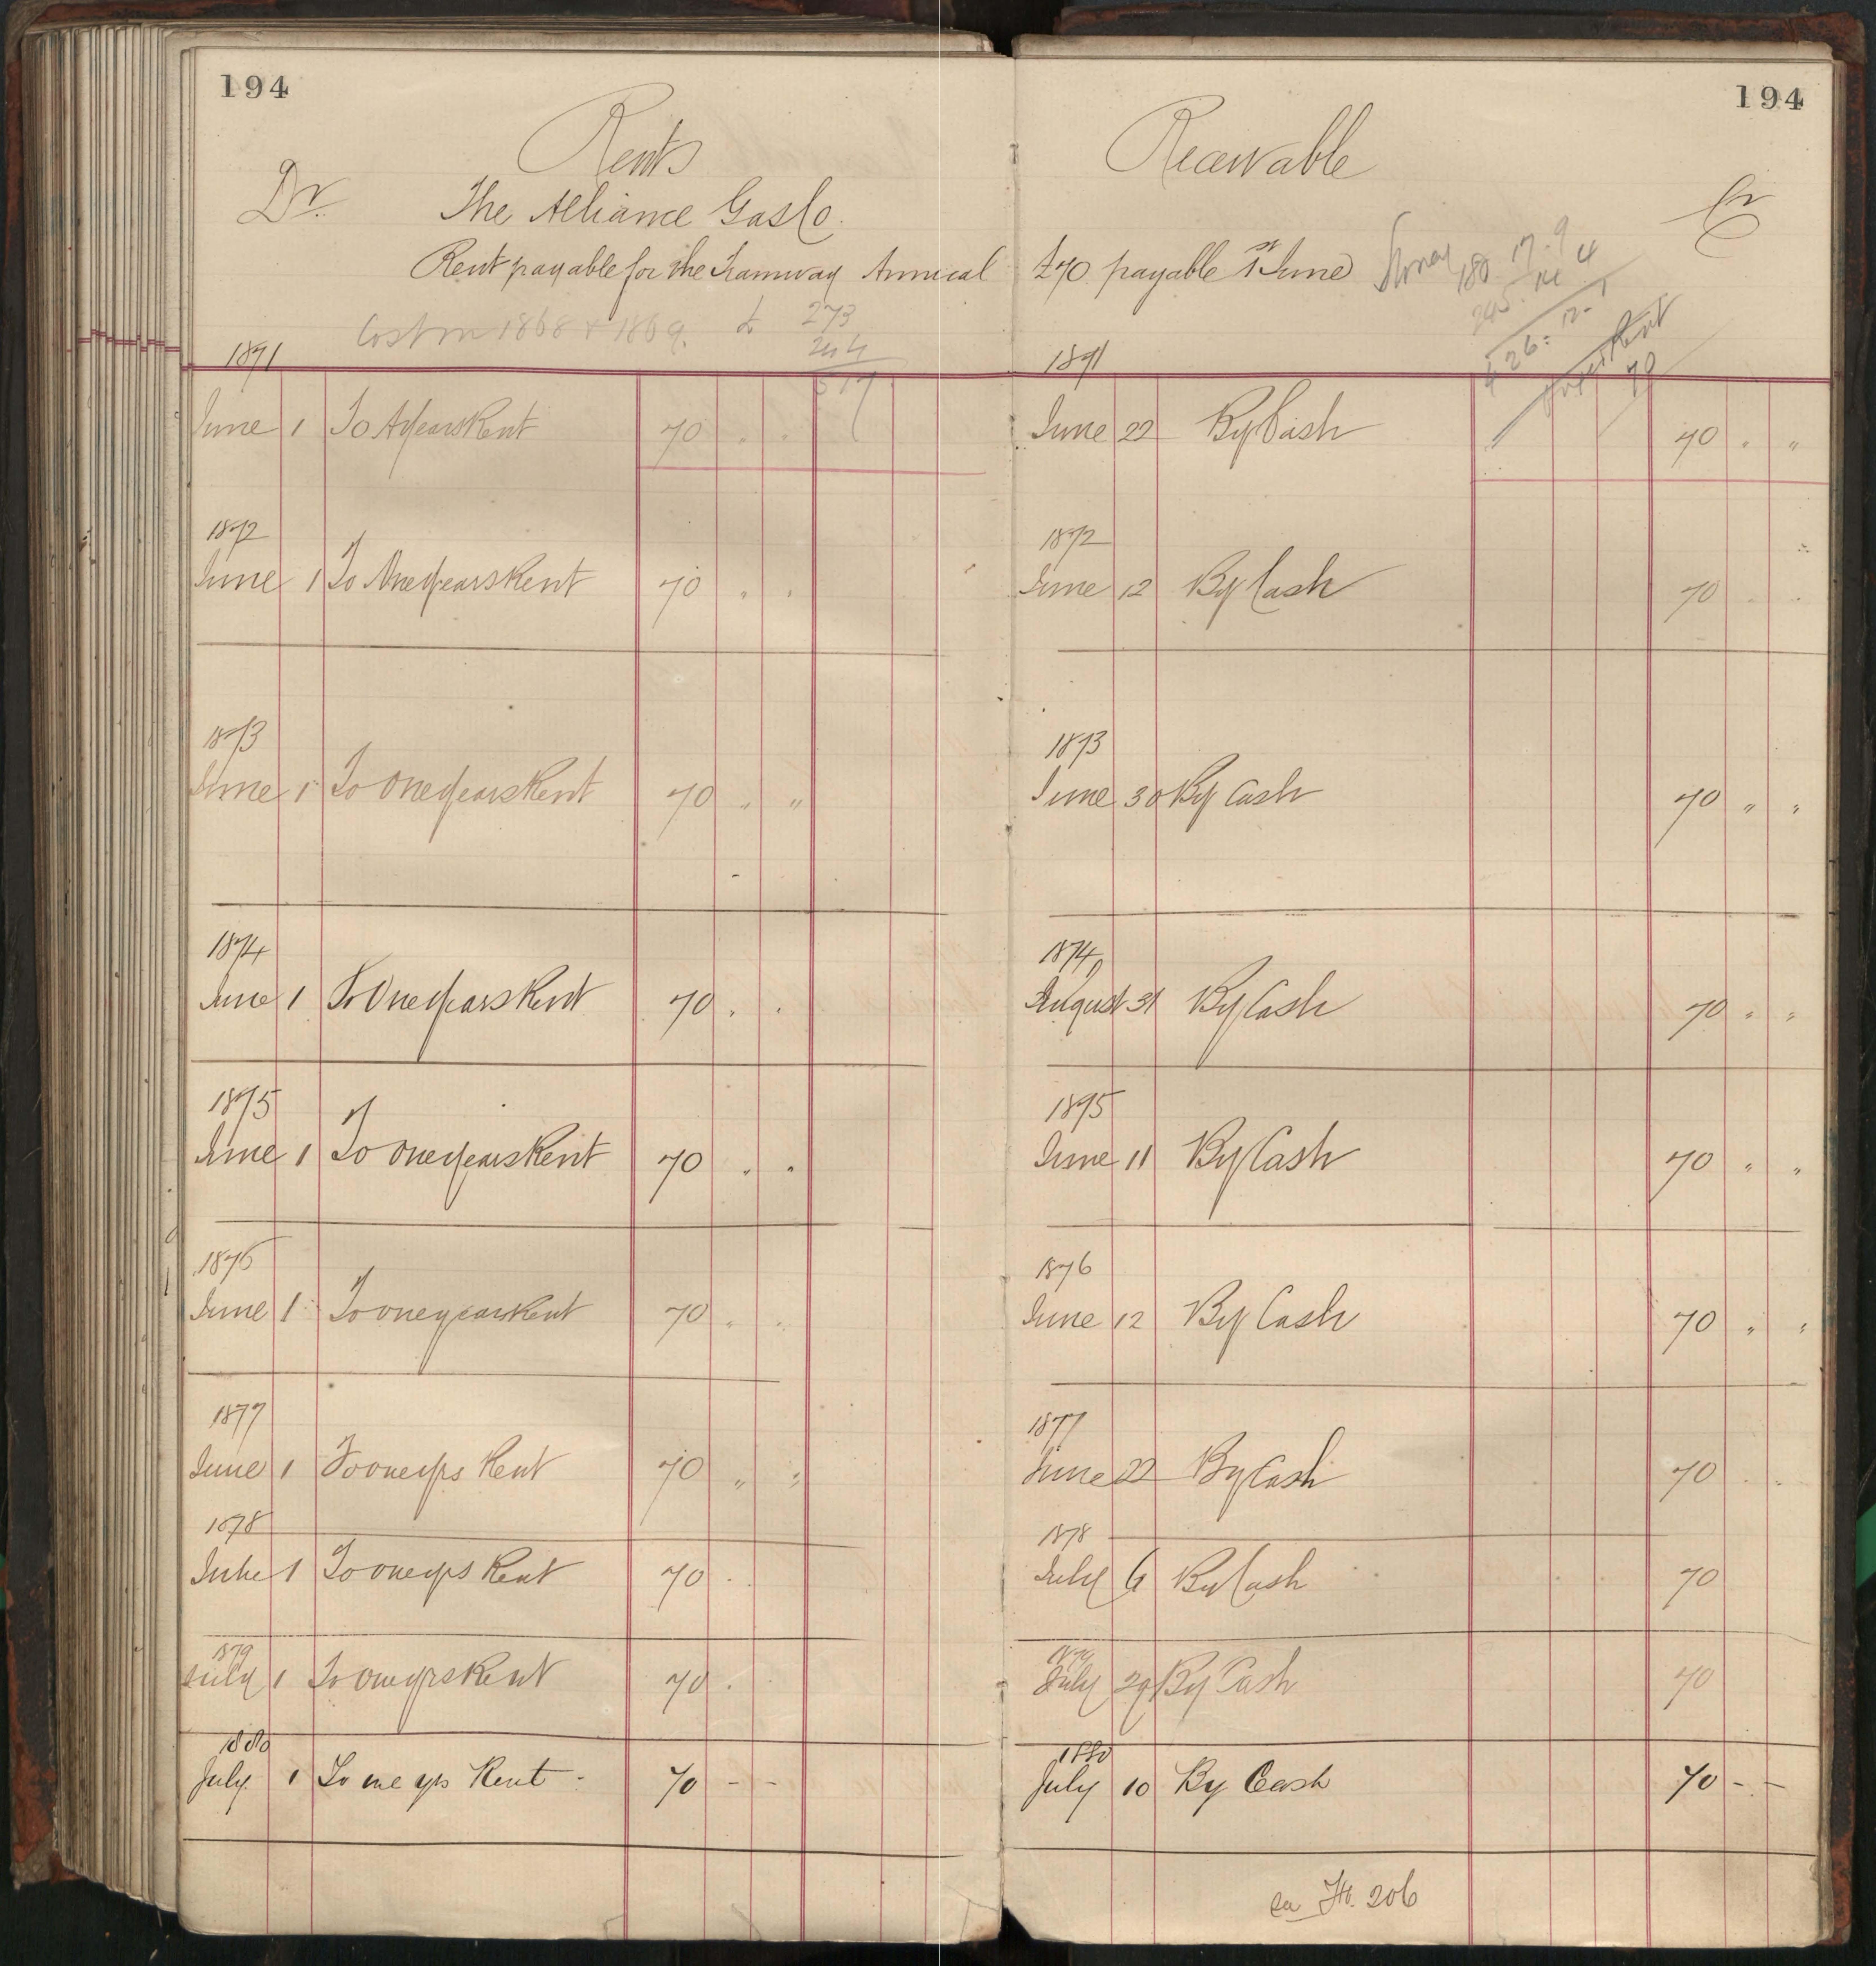 194
Rents
Dr.
The Alliance Gas Co.
Rent payable for the Tramway Annual
Cost in 1868 & 1869. £ 273
244
517
1871
June 1 To A years Rent 70 " "
1872
June 1 To One years Rent 70 " "
1873
June 1 To One years Rent 70 " "
1874
June 1 To One years Rent 70 " "
1875
June 1 To one years Rent 70 " "
1876
June 1 To one years Rent 70 " "
1877
June 1 To one yrs Rent 70 " "
1878
June 1 To one yrs Rent 70 "
1879
July 1 To one yrs Rent 70 "
1880
July 1 To one yrs Rent - 70 - -
194
Receivable
Cr
£70 payable 1st June
180 17. 9
245. 14 4
426: 12. 1
Rent
70
1871
June 22 By Cash 70 " "
1872
June 12 By Cash 70 " "
1873
June 30 By Cash 70 " "
1874
August 31 By Cash 70 " "
1875
June 11 By Cash 70 " "
1876
June 12 By Cash 70 " "
1877
June 22 By Cash 70
1878
July 6 By Cash 70
1879
July 29 By Cash 70
1880
July 10 By Cash 70 - -
Fo. 206